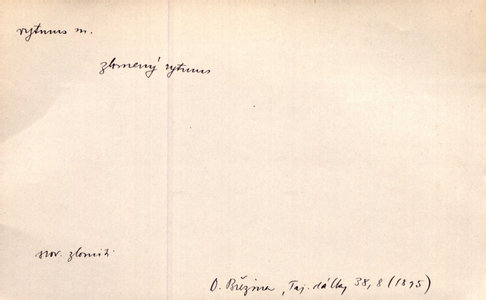 rytmus m.
zlomený rytmus
srov. zlomiti
O. Březina, Taj. dálky 38, 8 (1895)